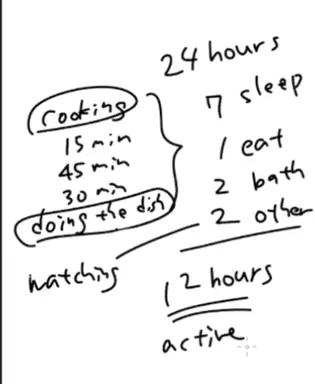 24 hours
7 sleep
1 eat
2 bath
2 other
12 hours
active
cooking
15 min
45 min
30 min
doing the dish
watching